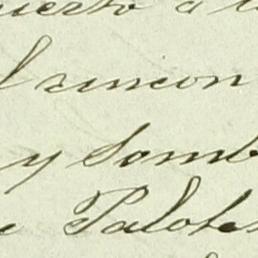 uerto a l
l rincon
y Somb
e Palotes